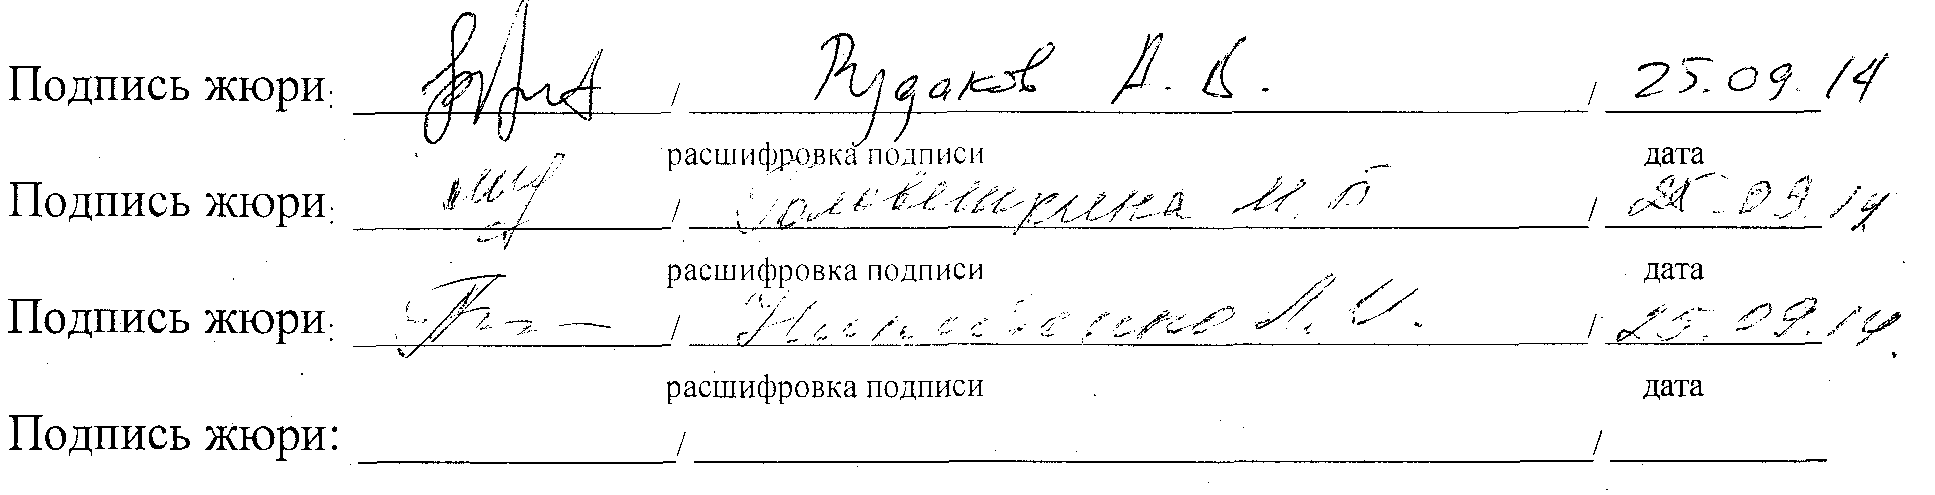 Подпись жюри: / Рудаков А. В. / 25.09.14
расшифровка подписи дата
Подпись жюри: / Головешкина М. П / 25.09.14
расшифровка подписи дата
Подпись жюри: / Л. И. / 25.09.14
расшифровка подписи дата
Подпись жюри: / /